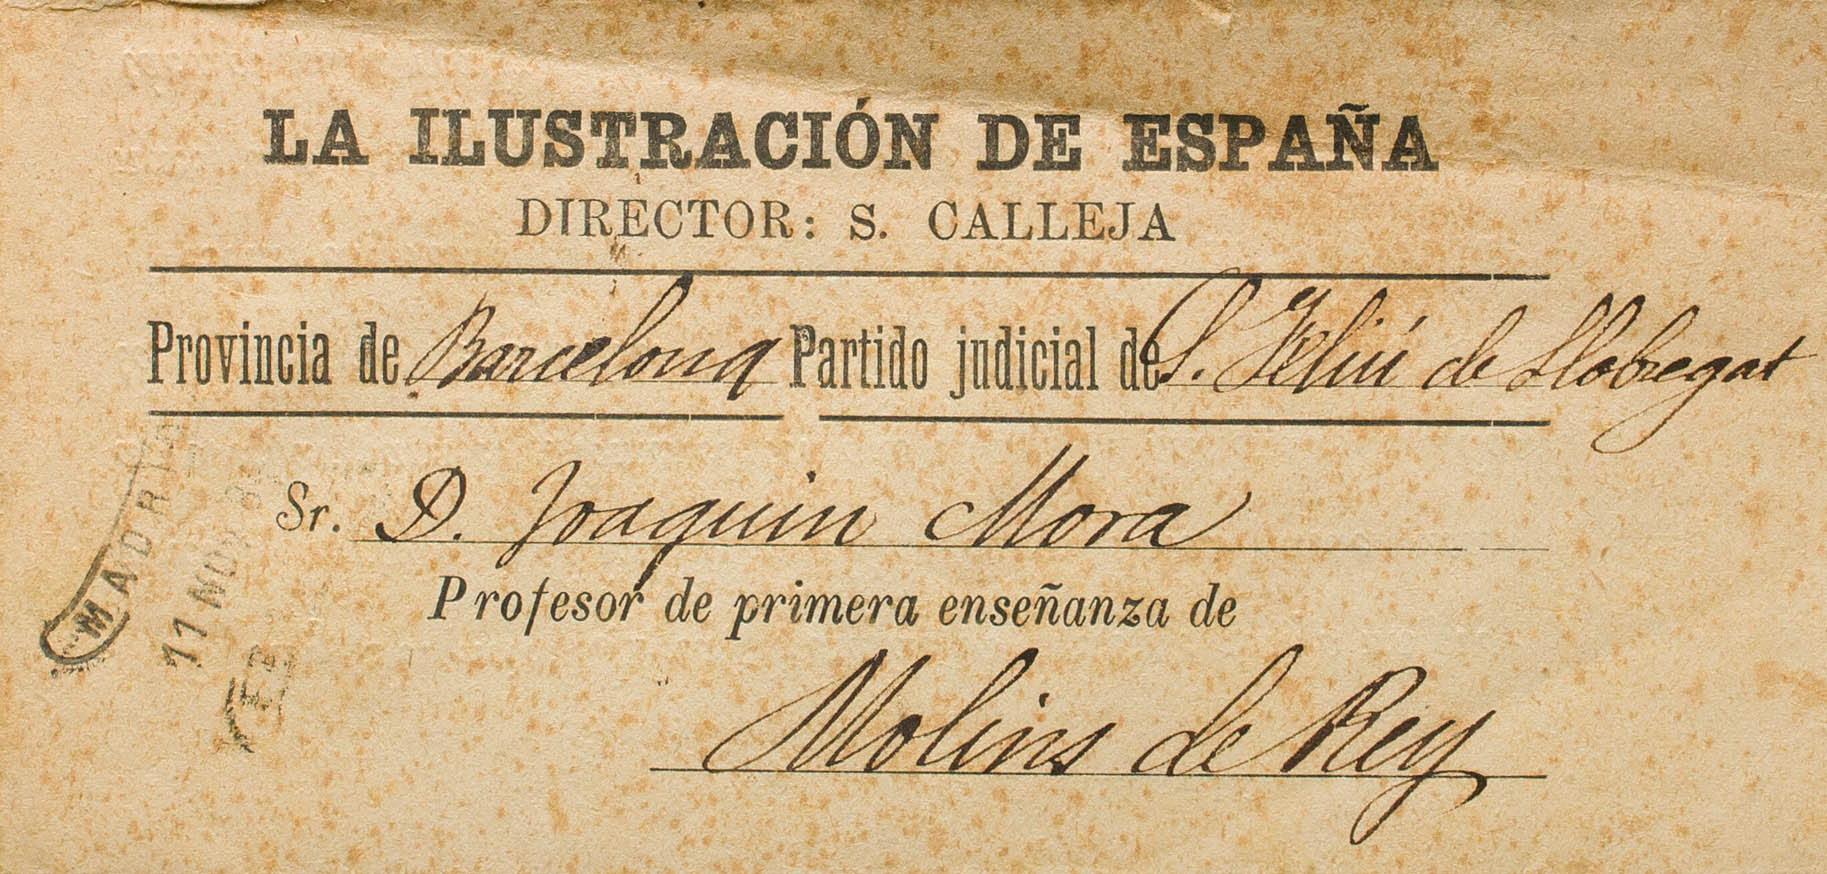 LA ILUSTRACIÓN DE ESPAÑA
DIRECTOR: S. CALLEJA
Provincia de Barcelona Partido judicial de S. Feliú de Llobregat
Sr. D. Joaquin Mora
Profesor de primera enseñanza de
Molins de Rey
MADRID
11 NOV